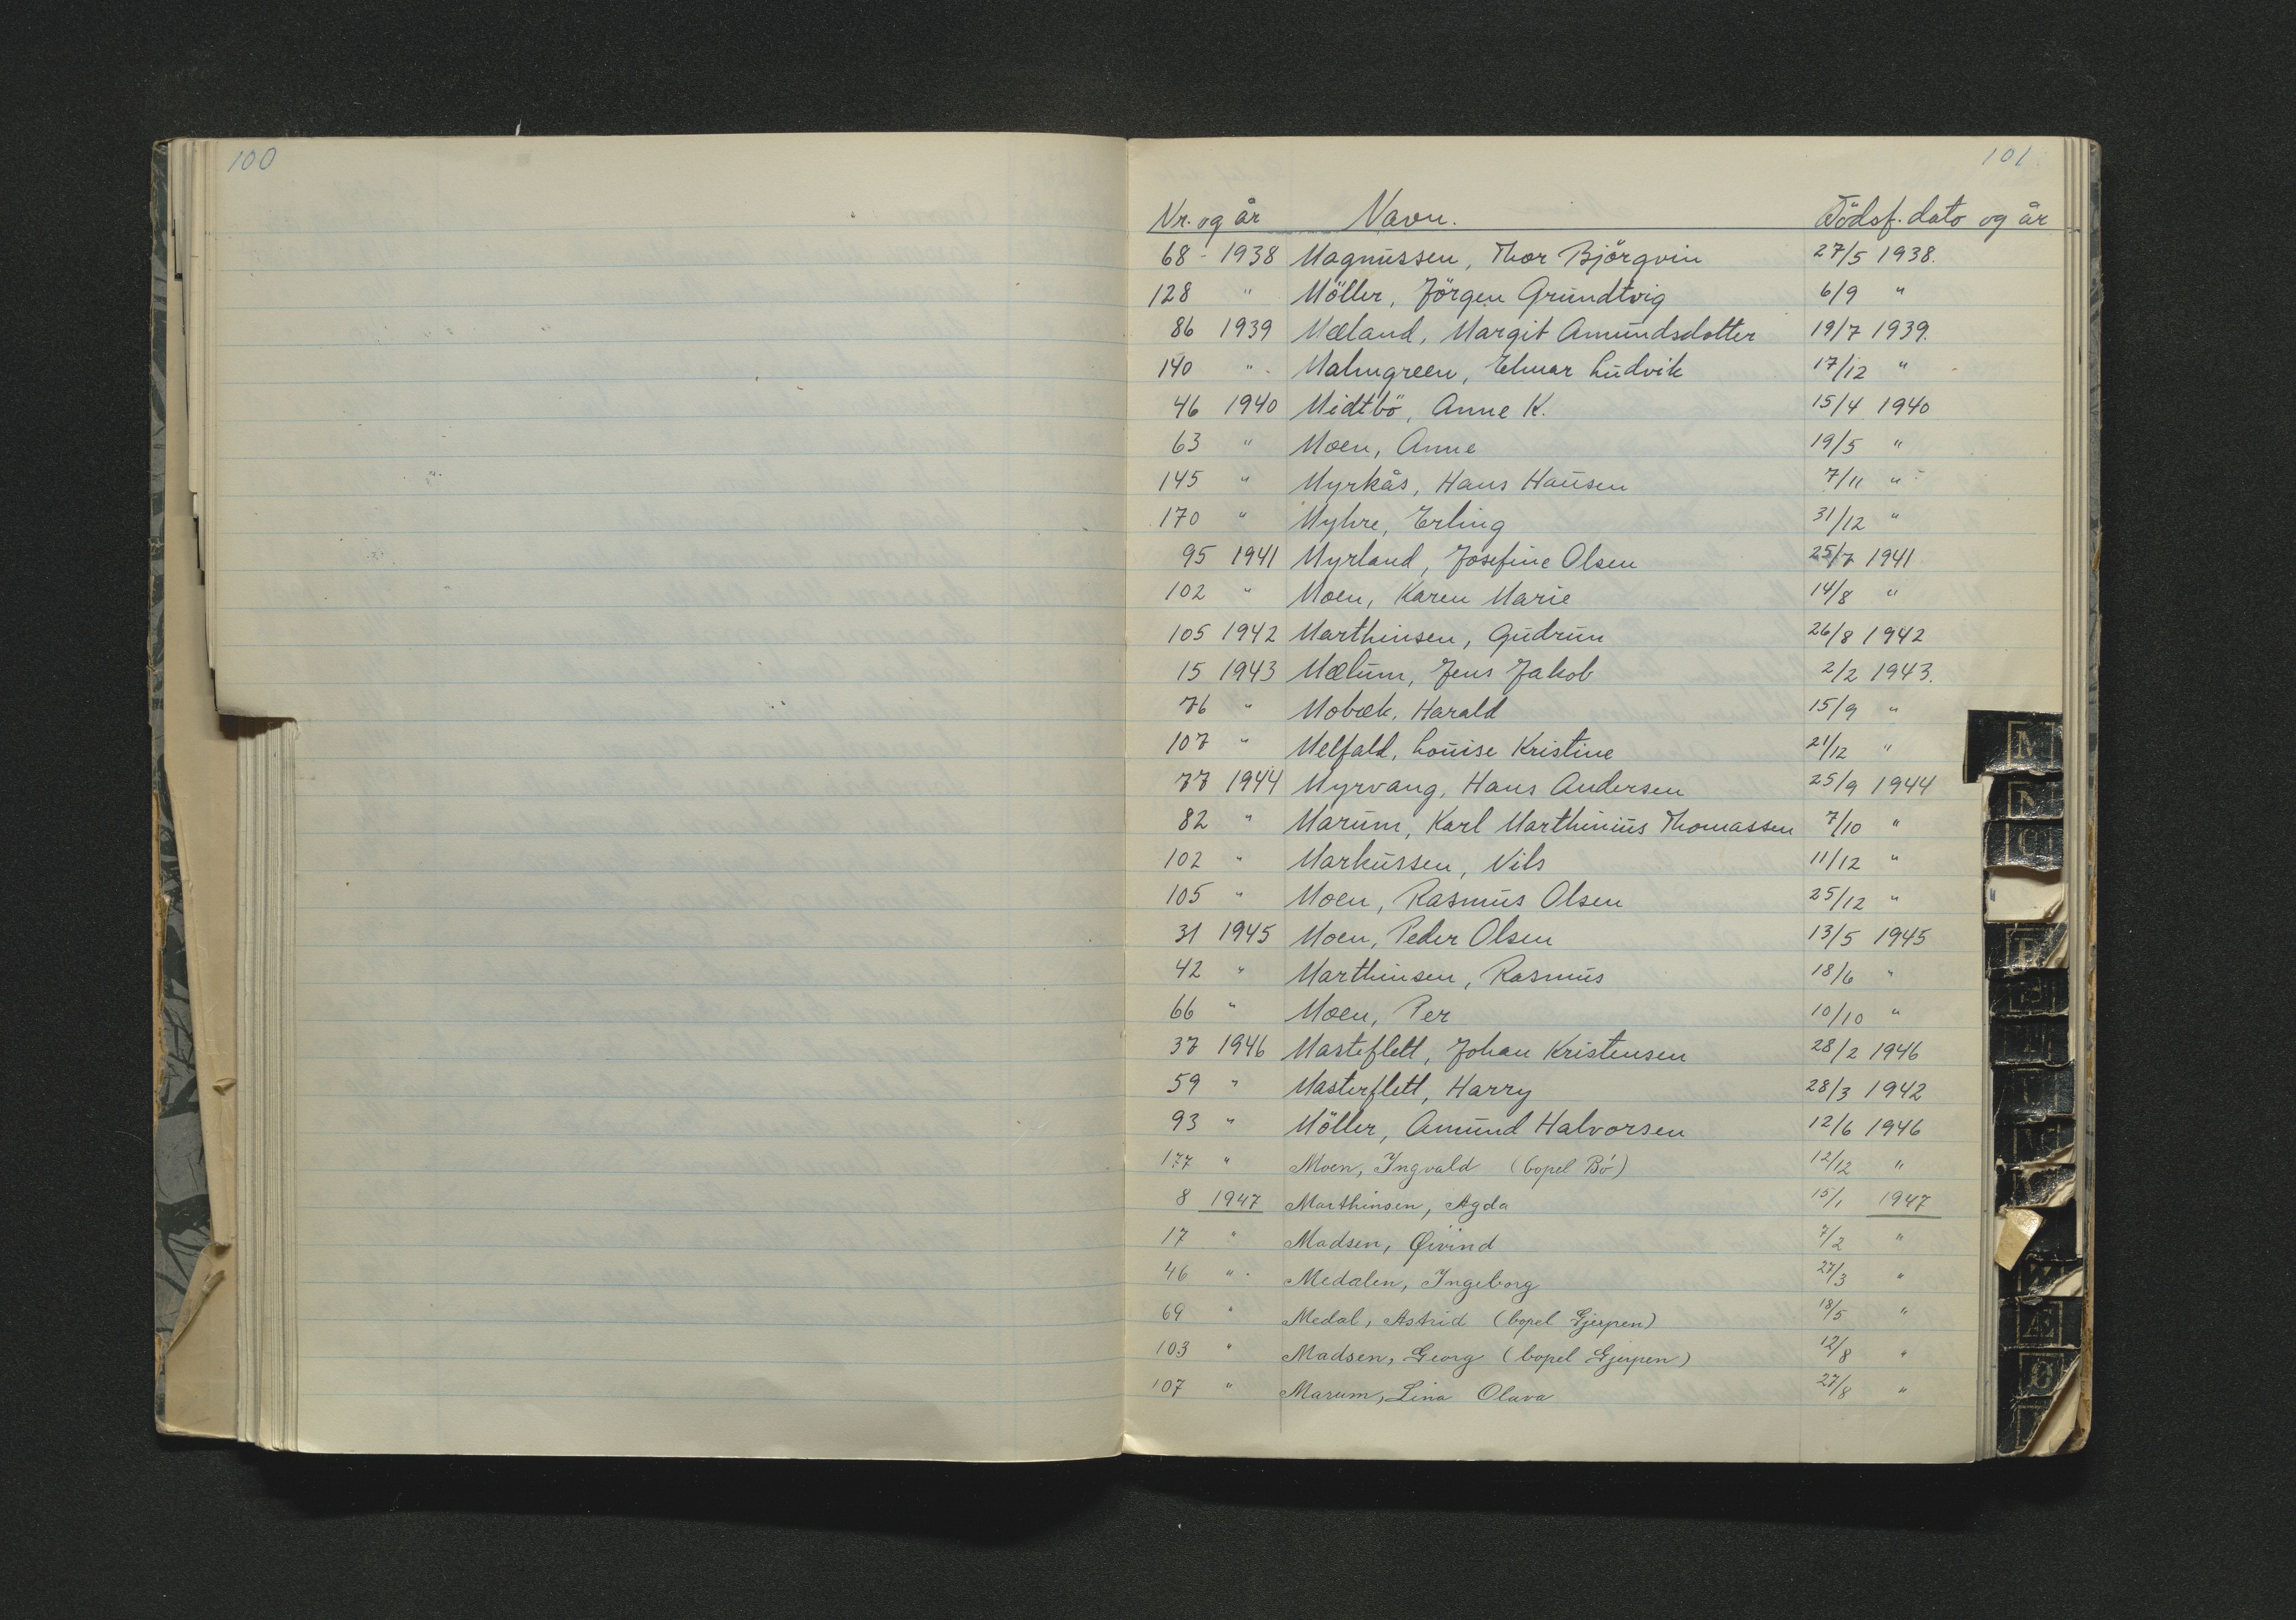 100
101
Nr. og år Navn. Dödsf. dato og år
68 - 1938 Magnussen, Thor Björgvin 27/5 1938.
128 " Möller, Jörgen Grundtvig 6/9 "
86 1939 Mæland, Margit Amundsdotter 19/7 1939.
140 " Malmgreen, Elmar Ludvik 17/12 "
46 1940 Midtbö, Anne K. 15/4 1940
63 " Moen, Anne 19/5 "
145 " Myrkås, Hans Hansen 7/11 "
170 " Myhre, Erling 31/12 "
95 1941 Myrland, Josefine Olsen 25/7 1941
102 " Moen, Karen Marie 14/8 "
105 1942 Marthinsen, Gudrun 26/8 1942
15 1943 Mælum, Jens Jakob 2/2 1943.
76 " Mobæk, Harald 15/9 "
107 " Melfald, Louise Kristine 21/12 "
77 1944 Myrvang, Hans Andersen 25/9 1944
82 " Marum, Karl Marthinius Thomassen 7/10 "
102 " Markussen, Nils 11/12 "
105 " Moen, Rasmus Olsen 25/12 "
31 1945 Moen, Peder Olsen 13/5 1945
42 " Marthinsen, Rasmus 18/6 "
66 " Moen, Per 10/10 "
37 1946 Masteflett, Johan Kristensen 28/2 1946
59 " Masterflett, Harry 28/3 1942
93 " Möller, Amund Halvorsen 12/6 1946
177 " Moen, Ingvald (bopel Bö) 12/12 "
8 1947 Marthinsen, Agda 15/1 1947
17 " Madsen, Øivind 7/2 "
46 " Medalen, Ingeborg 27/3 "
69 " Medal, Astrid (bopel Gjerpen) 18/5 "
103 " Madsen, Georg (bopel Gjerpen) 12/8 "
107 " Marum, Lina Olava 27/8 "
M
N
O
P
Æ
Ø